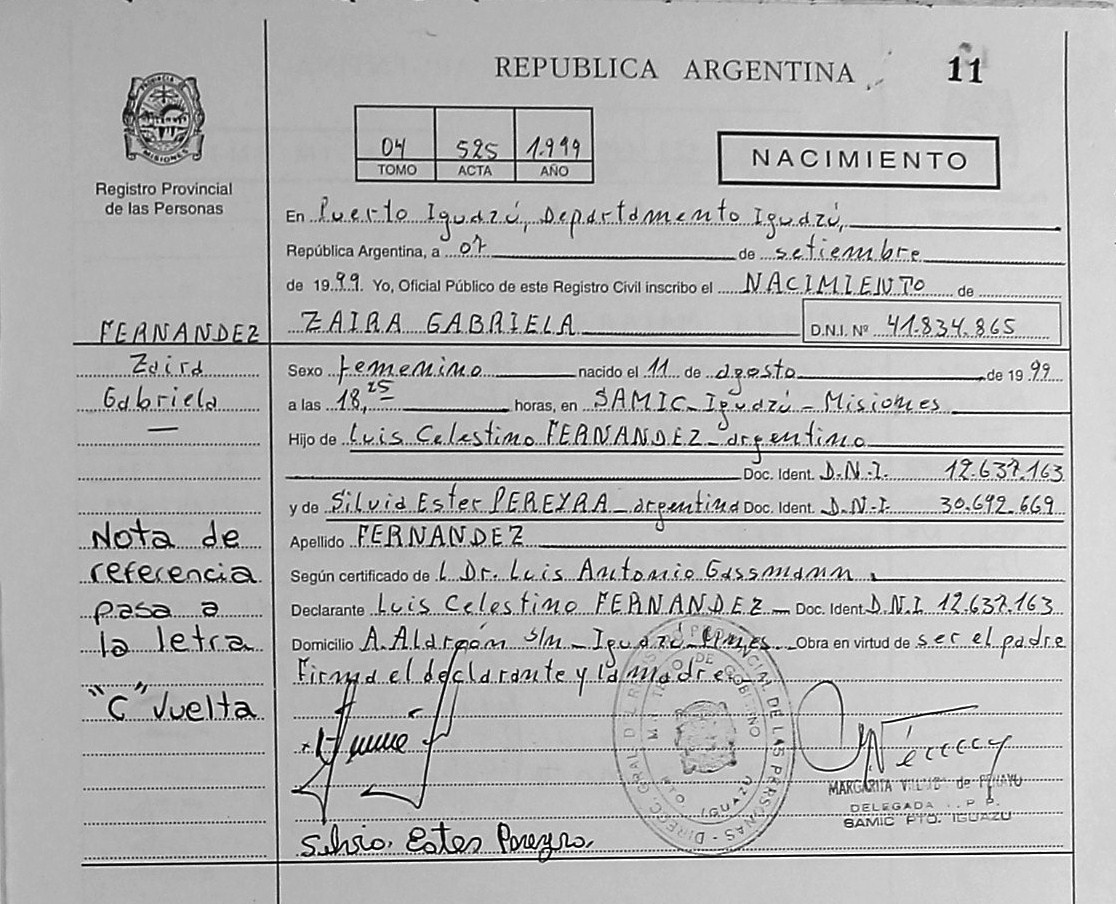 REPUBLICA ARGENTINA
11
PROVINCIA DE
MISIONES
Registro Provincial
de las Personas
04 525 1.999
TOMO ACTA AÑO
NACIMIENTO
En Puerto Iguazú, Departamento Iguazú,
República Argentina, a 07 de setiembre
de 1999 Yo, Oficial Público de este Registro Civil inscribo el NACIMIENTO de
ZAIRA GABRIELA D.N.I. Nº 41.834.865
FERNANDEZ
Zaira
Gabriela
Sexo femenino nacido el 11 de agosto de 1999
a las 18,25 horas, en SAMIC_Iguazú_Misiones
Hijo de Luis Celestino FERNANDEZ_argentino
Doc. Ident. D.N.I. 12.637.163
y de Silvia Ester PEREYRA_argentina Doc. Ident. D.N.I. 30.692.669
Apellido FERNANDEZ
Según certificado de L Dr. Luis Antonio Gassmann.
Declarante Luis Celestino FERNANDEZ_ Doc. Ident. D.N.I 12.637.163
Domicilio A. s/n_Iguazú_ Obra en virtud de ser el padre
Firma el declarante y la madre_
Nota de
referencia
pasa a
la letra
"C" Vuelta
DIRECC. GRAL DEL REGISTRO PROVINCIAL DE LAS PERSONAS
MINISTERIO DE GOBIERNO
IGUAZU
MARGARITA de
DELEGADA
SAMIC PTO. IGUAZU
Silvia Ester Pereyra